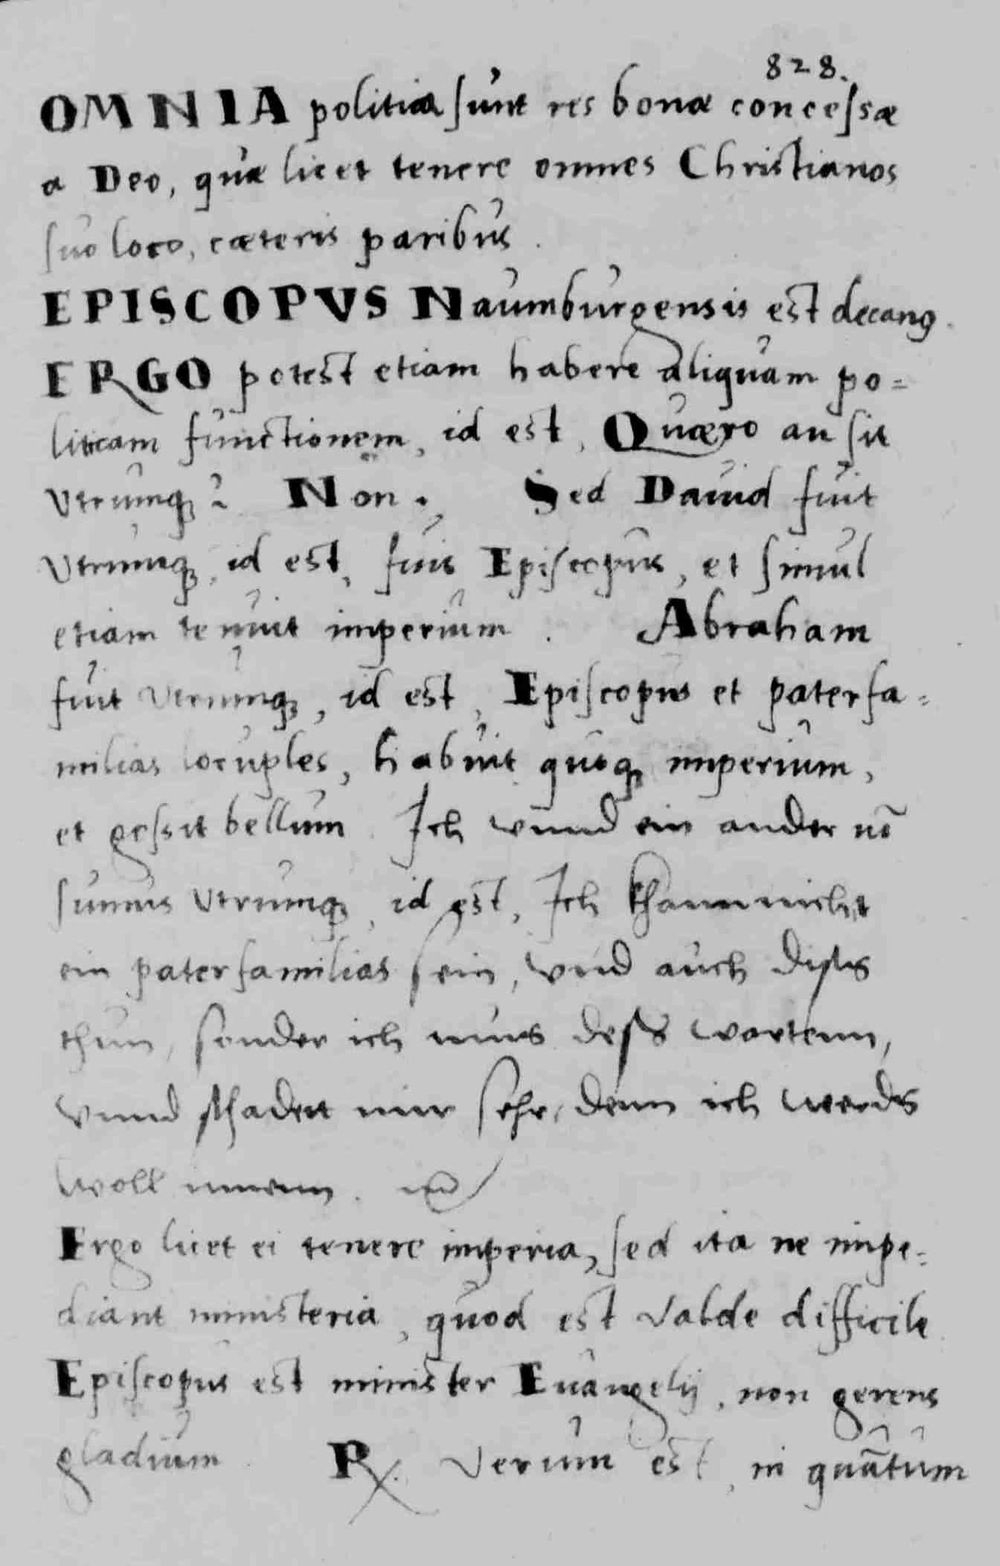 828.
OMNIA politica sunt res bonæ concessæ
a Deo, quæ licet tenere omnes Christianos
suo loco, cæteris paribus.
EPISCOPVS Naumburgensis est decanꝰ.
ERGO potest etiam habere aliquam po=
liticam functionem, id est, Quæro an sit
Vtrumqꝫ? Non. Sed Dauid fuit
Vtrumqꝫ, id est, fuit Episcopus, et simul
etiam tenuit imperium. Abraham
fuit Vtrumqꝫ, id est, Episcopus et paterfa=
milias locuples, habuit quoqꝫ imperium,
et gessit bellum. Ich vnnd ein ander nõ
sumus Vtrumqꝫ, id est, Ich khann nicht
ein paterfamilias sein, vnd auch diss
thun, sonder ich mus dess wortenn,
vnnd schadett mir sehr, denn ich werds
woll innenn.
Ergo licet ei tenere imperia, sed ita ne impe=
diant ministeria, quod est valde difficile
Episcopus est minister Euangelij, non gerens
gladium. R. Verum est, in quãtum